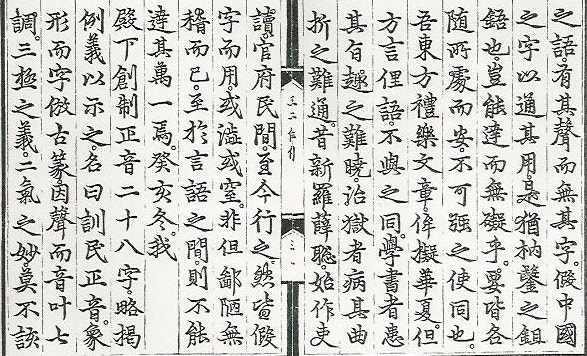 之語。有其聲而無其字。假中國
之字以通其用。是猶枘鑿之鉏
鋙也。豈能達而無礙乎。要皆各
随所處而安。不可强之使同也。
吾東方禮樂文章。侔擬華夏。但
方言俚語不與之同。學書者患
其旨趣之難曉。治獄者病其曲
折之難通。昔新羅薛聰。始作吏
讀。官府民間。至今行之。然皆假
字而用。或澁或窒。非但鄙陋無
稽而已。至於言語之間。則不能
達其萬一焉。癸亥冬。我
殿下創制正音二十八字。略揭
例義以示之。名曰訓民正音。象
形而字倣古篆。因聲而音叶七
調。三極之義。二氣之妙。莫不該